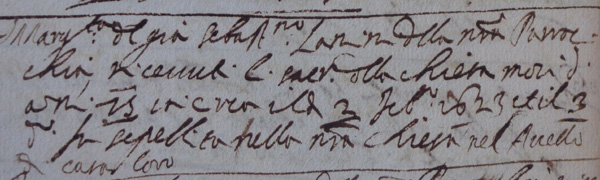 Marg.ta del già Sebast.no della nra Parroc-
chia, ricevuti l. sacr. della chiesa morì d'
anni 13 in circa il dì 2 Feb.ro 1623 et il 3
d.o fu sepellita nella nra chiesa nel Avello
di casa loro